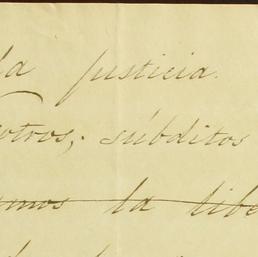 la justicia.
otros, súbditos
amos la libe